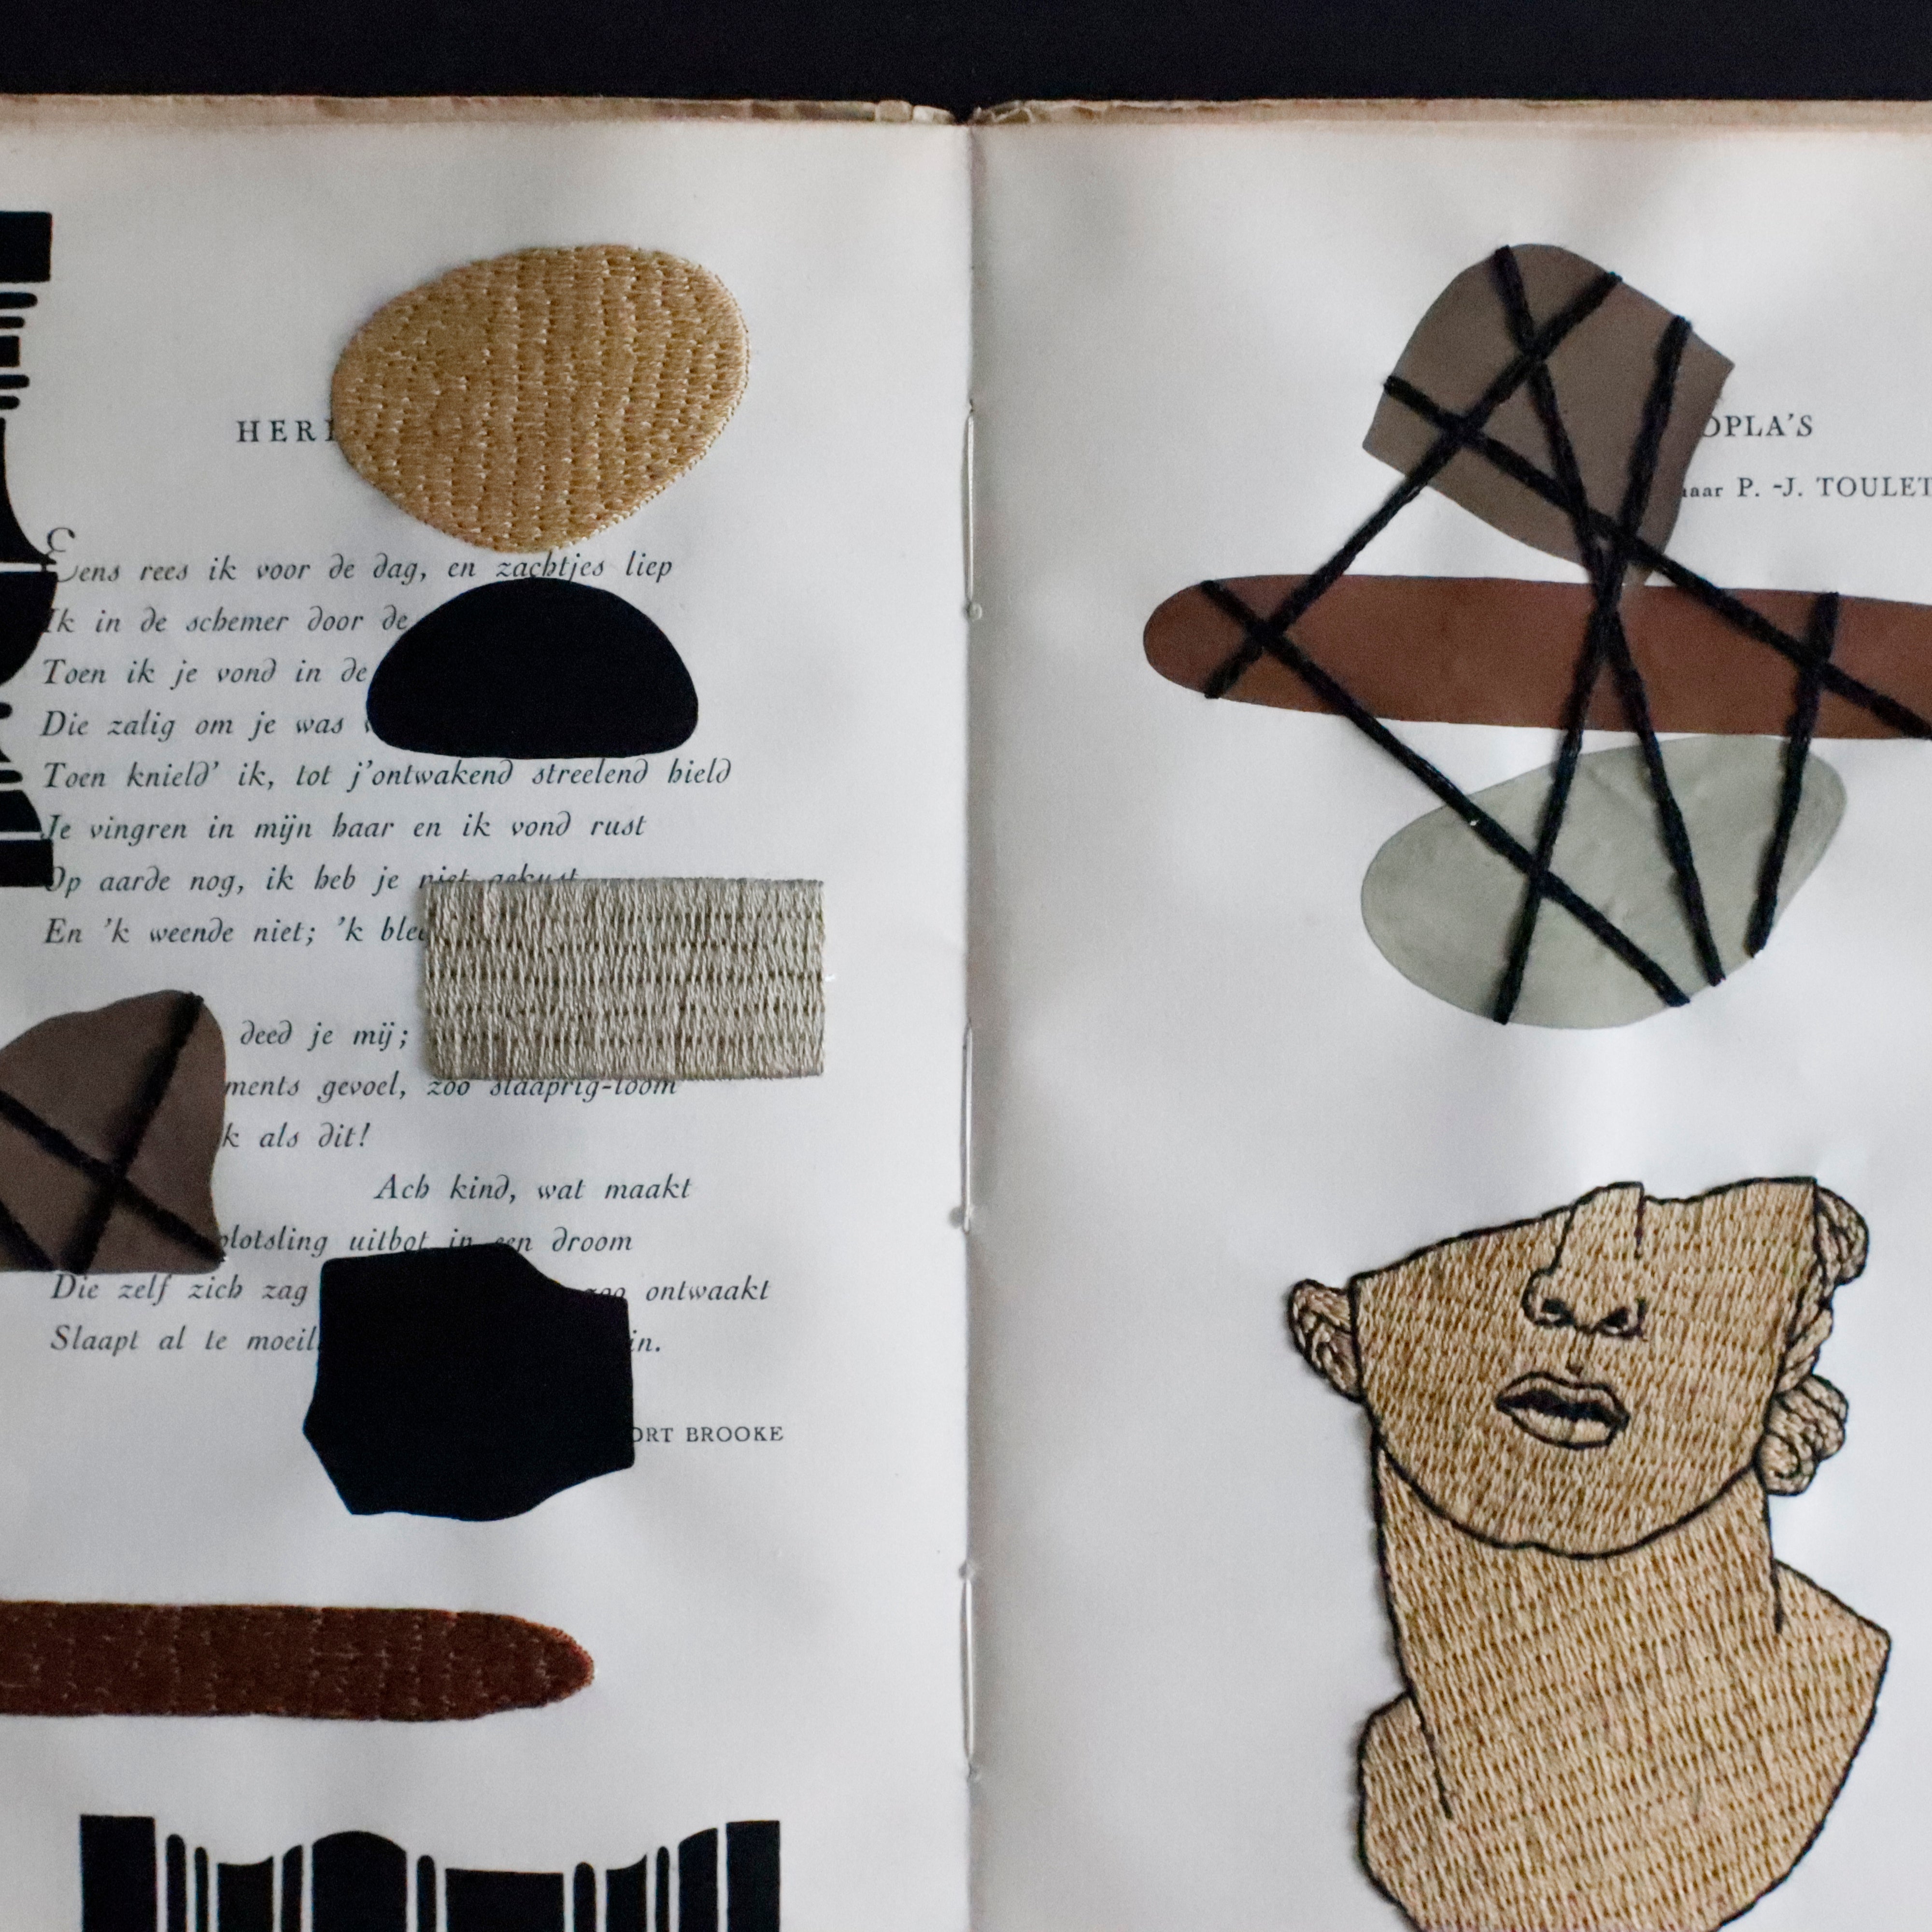 HER
Eens rees ik voor de dag, en zachtjes liep
Ik in de schemer door de
Toen ik je vond in de
Die zalig om je was
Toen knield' ik, tot j'ontwakend streelend hield
Je vingren in mijn haar en ik vond rust
Op aarde nog, ik heb je niet gekust
En 'k weende niet; 'k blee
deed je mij;
ments gevoel, zoo slaaprig-loom
k als dit!
Ach kind, wat maakt
plotsling uitbot in een droom
Die zelf zich zag zoo ontwaakt
Slaapt al te moeil in.
ORT BROOKE
OPLA'S
naar P. -J. TOULET